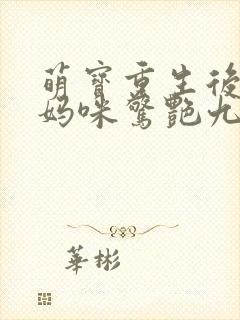 萌寶重生後
媽咪驚艷九
華彬